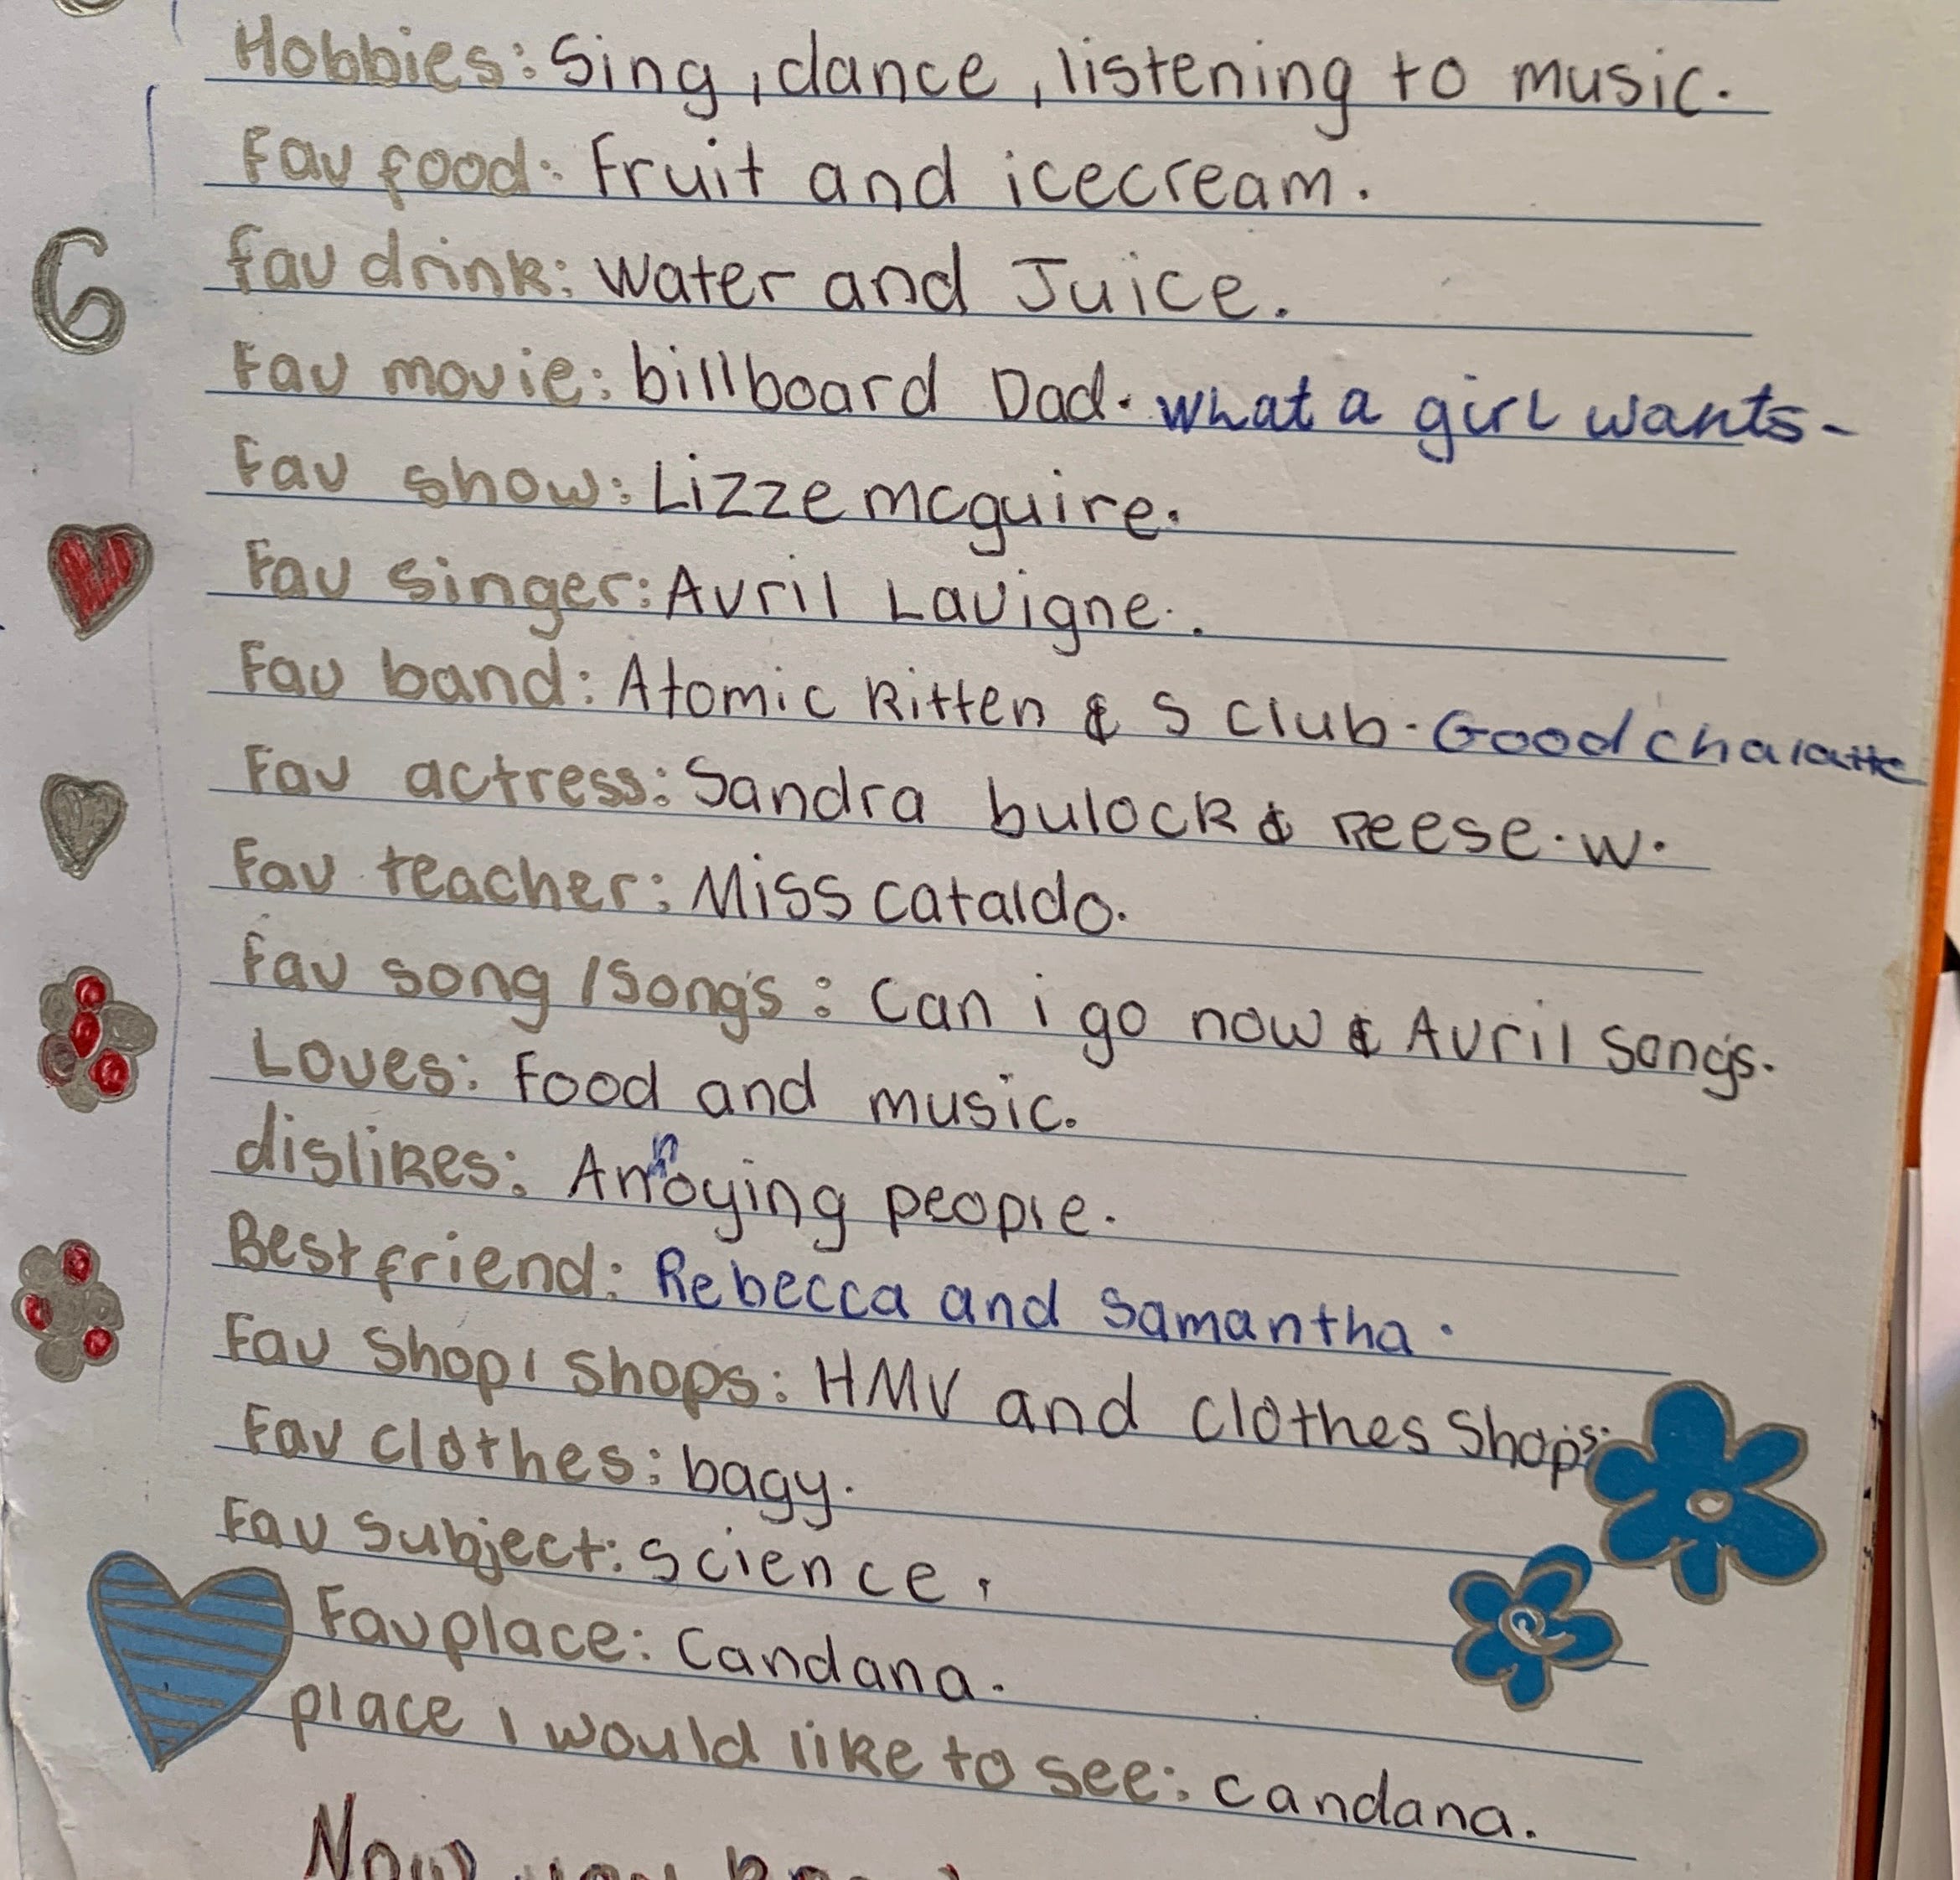 Hobbies: Sing, dance, listening to music.
Fav food: Fruit and icecream.
6
fav drink: Water and Juice.
Fav movie: billboard Dad. what a girl wants-
Fav show: Lizze mcguire.
Fav singer: Avril Lavigne.
Fav band: Atomic Kitten & S Club. Good chalatte
Fav actress: Sandra bulock & Reese. w.
Fav teacher: Miss cataldo.
Fav song /songs: Can i go now & Avril songs.
Loves: Food and music.
dislikes: Annoying people.
Best friend: Rebecca and Samantha.
Fav Shop/ Shops: HMV and clothes Shops.
Fav clothes: bagy.
Fav subject: science.
Fav place: Candana.
place I would like to see: candana.
Now you